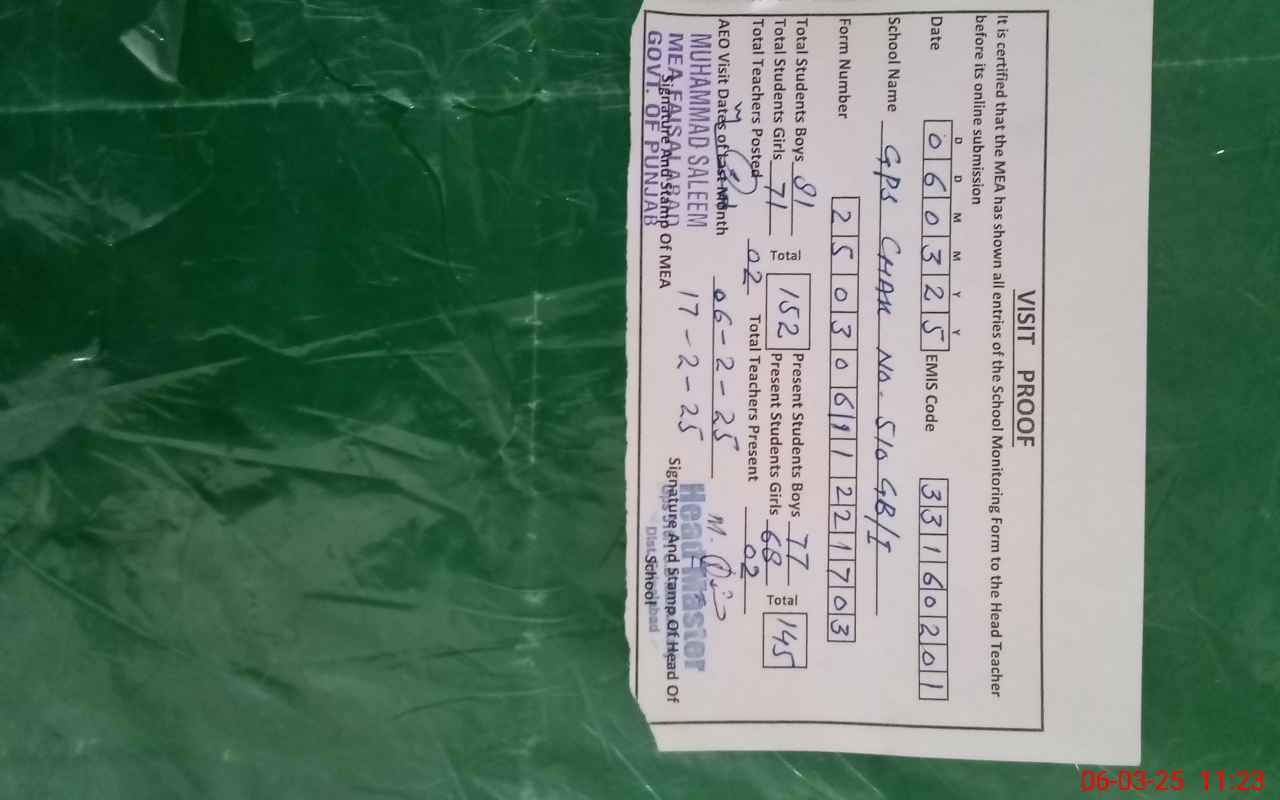 VISIT PROOF
It is certified that the MEA has shown all entries of the School Monitoring Form to the Head Teacher
before its online submission
D D M M Y Y
Date 060325 EMIS Code 33160201
School Name GPS CHAK NO. 510 GB/I
Form Number 25030691221703
Total Students Boys 81 Present Students Boys 77
Total Students Girls 71 Total 152 Present Students Girls 68 Total 145
Total Teachers Posted 02 Total Teachers Present 02
AEO Visit Dates of Last Month 06-2-25
17-2-25
MUHAMMAD SALEEM
MEA FAISALABAD
GOVT. OF PUNJAB
Signature And Stamp Of MEA
Head Master
Signature And Stamp Of Head Of
School
06-03-25 11:23